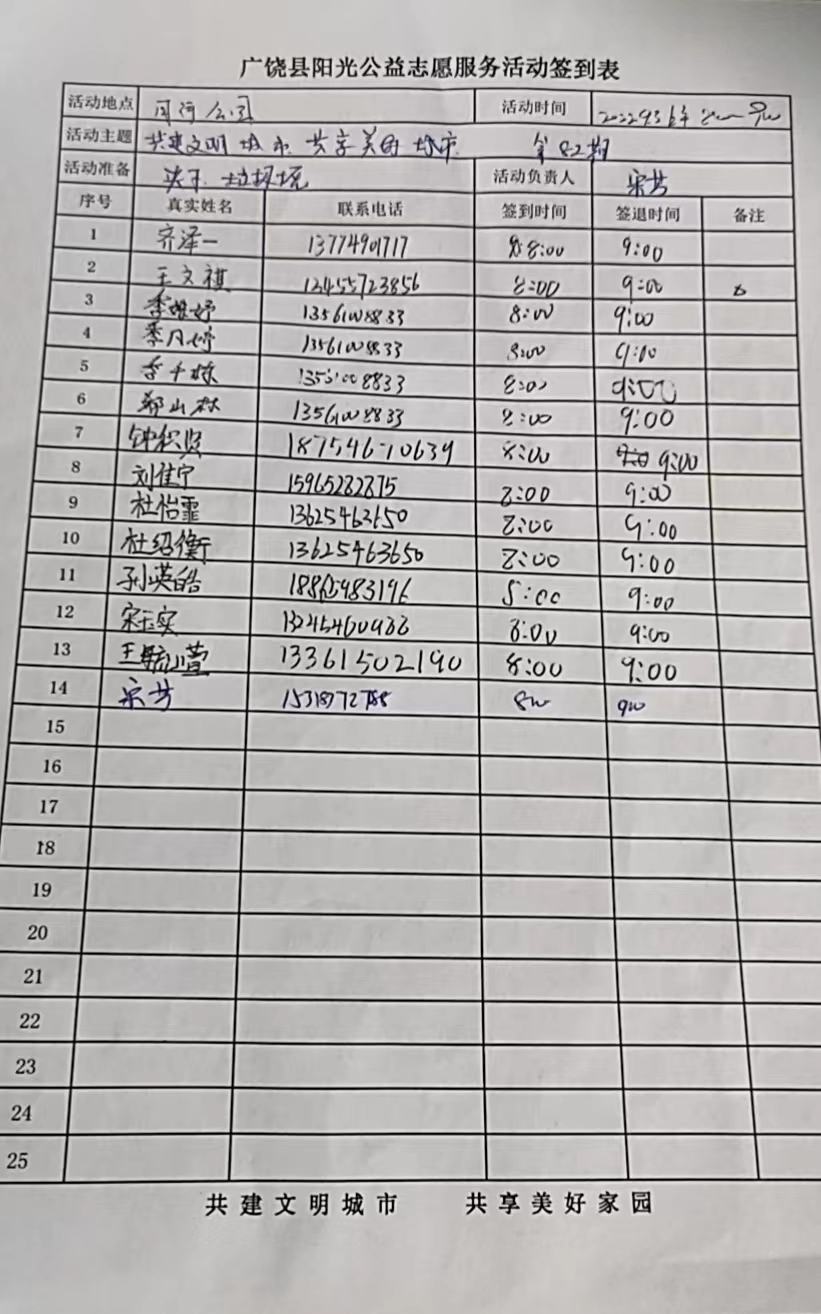 广饶县阳光公益志愿服务活动签到表
活动地点 公园 活动时间
活动主题 共建文明城市 共享美好城市 第82期
活动准备 夹子 垃圾 活动负责人 宋芳
序号 真实姓名 联系电话 签到时间 签退时间 备注
1 齐泽一 13774901717 8:00 9:00
2 王文祺 12455723856 8:00 9:00
3 13561008833 8:00 9:00
4 13561008833 8:00 9:00
5 李千 8833 8:00 9:00
6 郑山林 13561008833 8:00 9:00
7 钟 18754670639 8:00 9:00
8 刘佳宁 15965282875 8:00 9:00
9 杜怡霏 13625463650 8:00 9:00
10 杜绍衡 13625463650 8:00 9:00
11 孙英皓 8:00 9:00
12 宋玉实 8:00 9:00
13 王毓萱 13361502190 8:00 9:00
14 宋芳
15
16
17
18
19
20
21
22
23
24
25
共建文明城市 共享美好家园